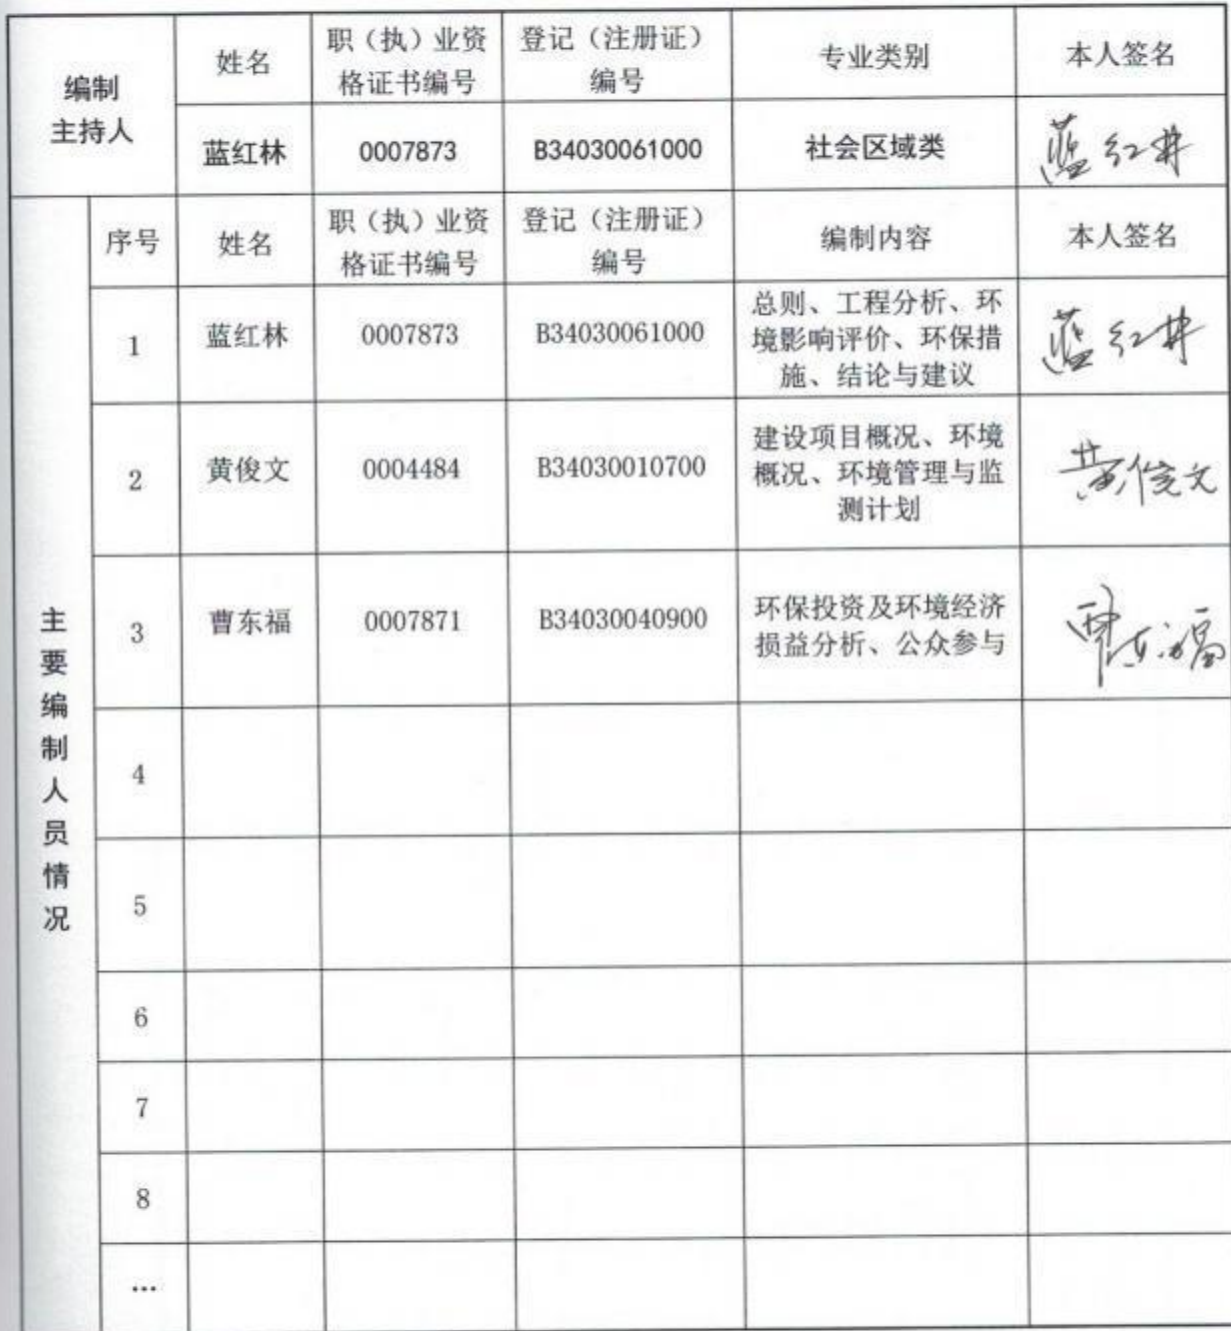 编制
主持人
姓名
职（执）业资
格证书编号
登记（注册证）
编号
专业类别
本人签名
蓝红林
0007873
B34030061000
社会区域类
蓝红林
主要编制人员情况
序号
姓名
职（执）业资
格证书编号
登记（注册证）
编号
编制内容
本人签名
1
蓝红林
0007873
B34030061000
总则、工程分析、环
境影响评价、环保措
施、结论与建议
蓝红林
2
黄俊文
0004484
B34030010700
建设项目概况、环境
概况、环境管理与监
测计划
黄俊文
3
曹东福
0007871
B34030040900
环保投资及环境经济
损益分析、公众参与
曹东福
4
5
6
7
8
…